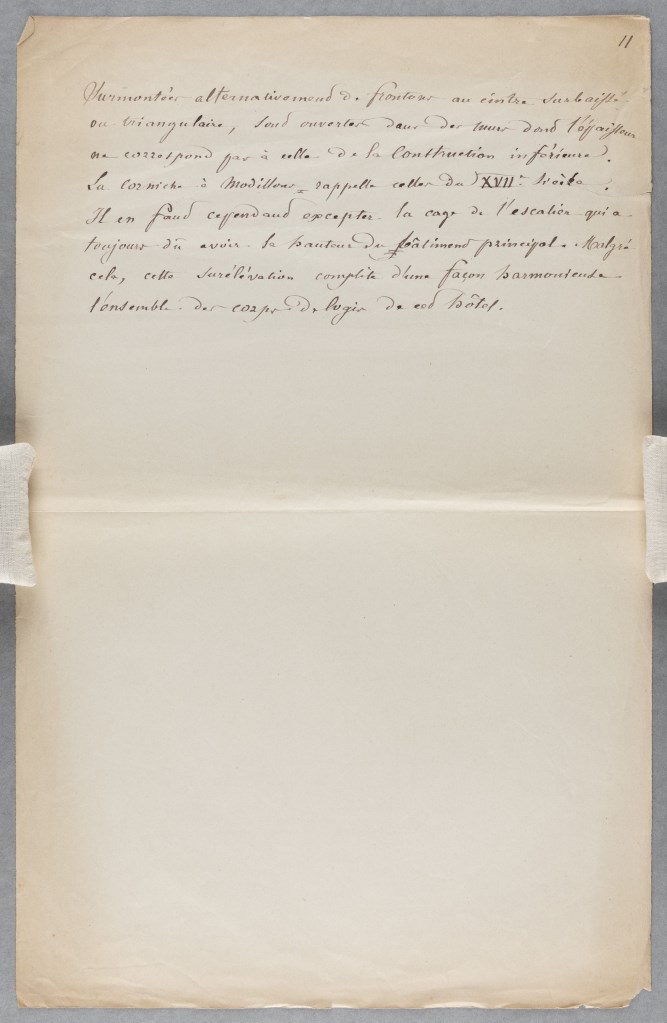 11
surmontées alternativement de frontons au cintre surbaissé
ou triangulaire, sont ouvertes dans des murs dont l'épaisseur
ne correspond pas à celle de la Construction inférieure.
La corniche à Modillons rappelle celles du XVIIe Siècle.
Il en faut cependant excepter la cage de l'escalier qui a
toujours dû avoir la hauteur du bâtiment principal. Malgré
cela, cette surélévation complète d'une façon harmonieuse
l'ensemble des corps de logis de cet hôtel.